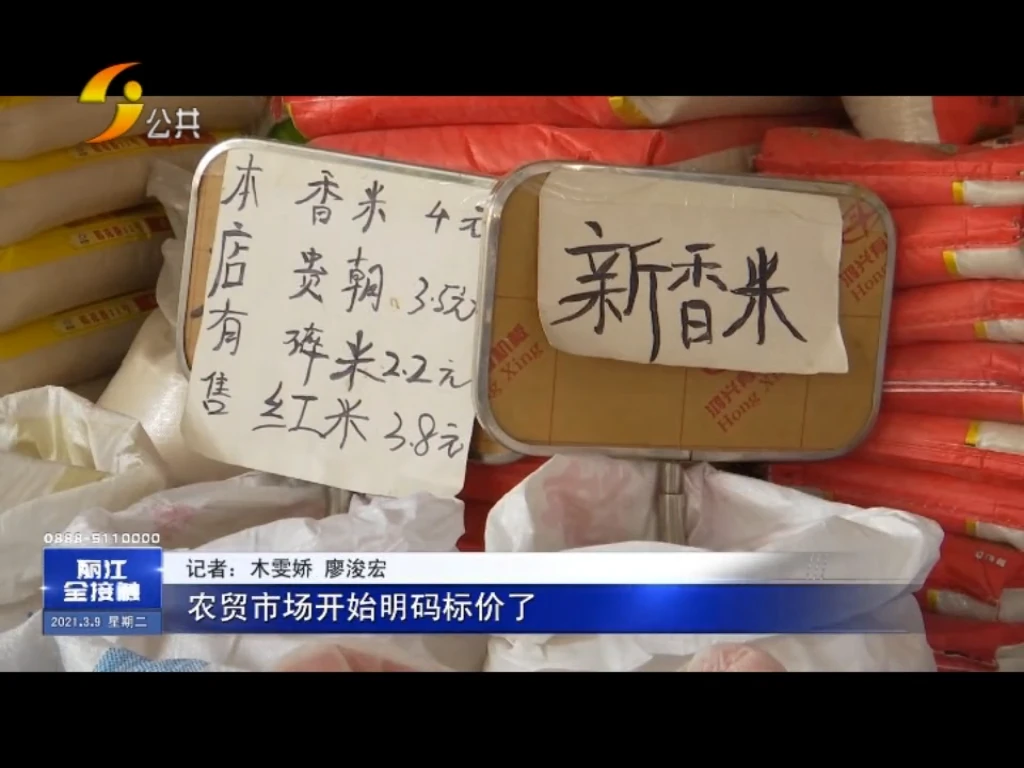 公共
本店有售
香米 4元
贵朝 3.5元
碎米 2.2元
红米 3.8元
新香米
Hong Xing
Hong
0888-5110000
丽江
全接触
2021.3.9 星期二
记者：木雯娇 廖浚宏
农贸市场开始明码标价了